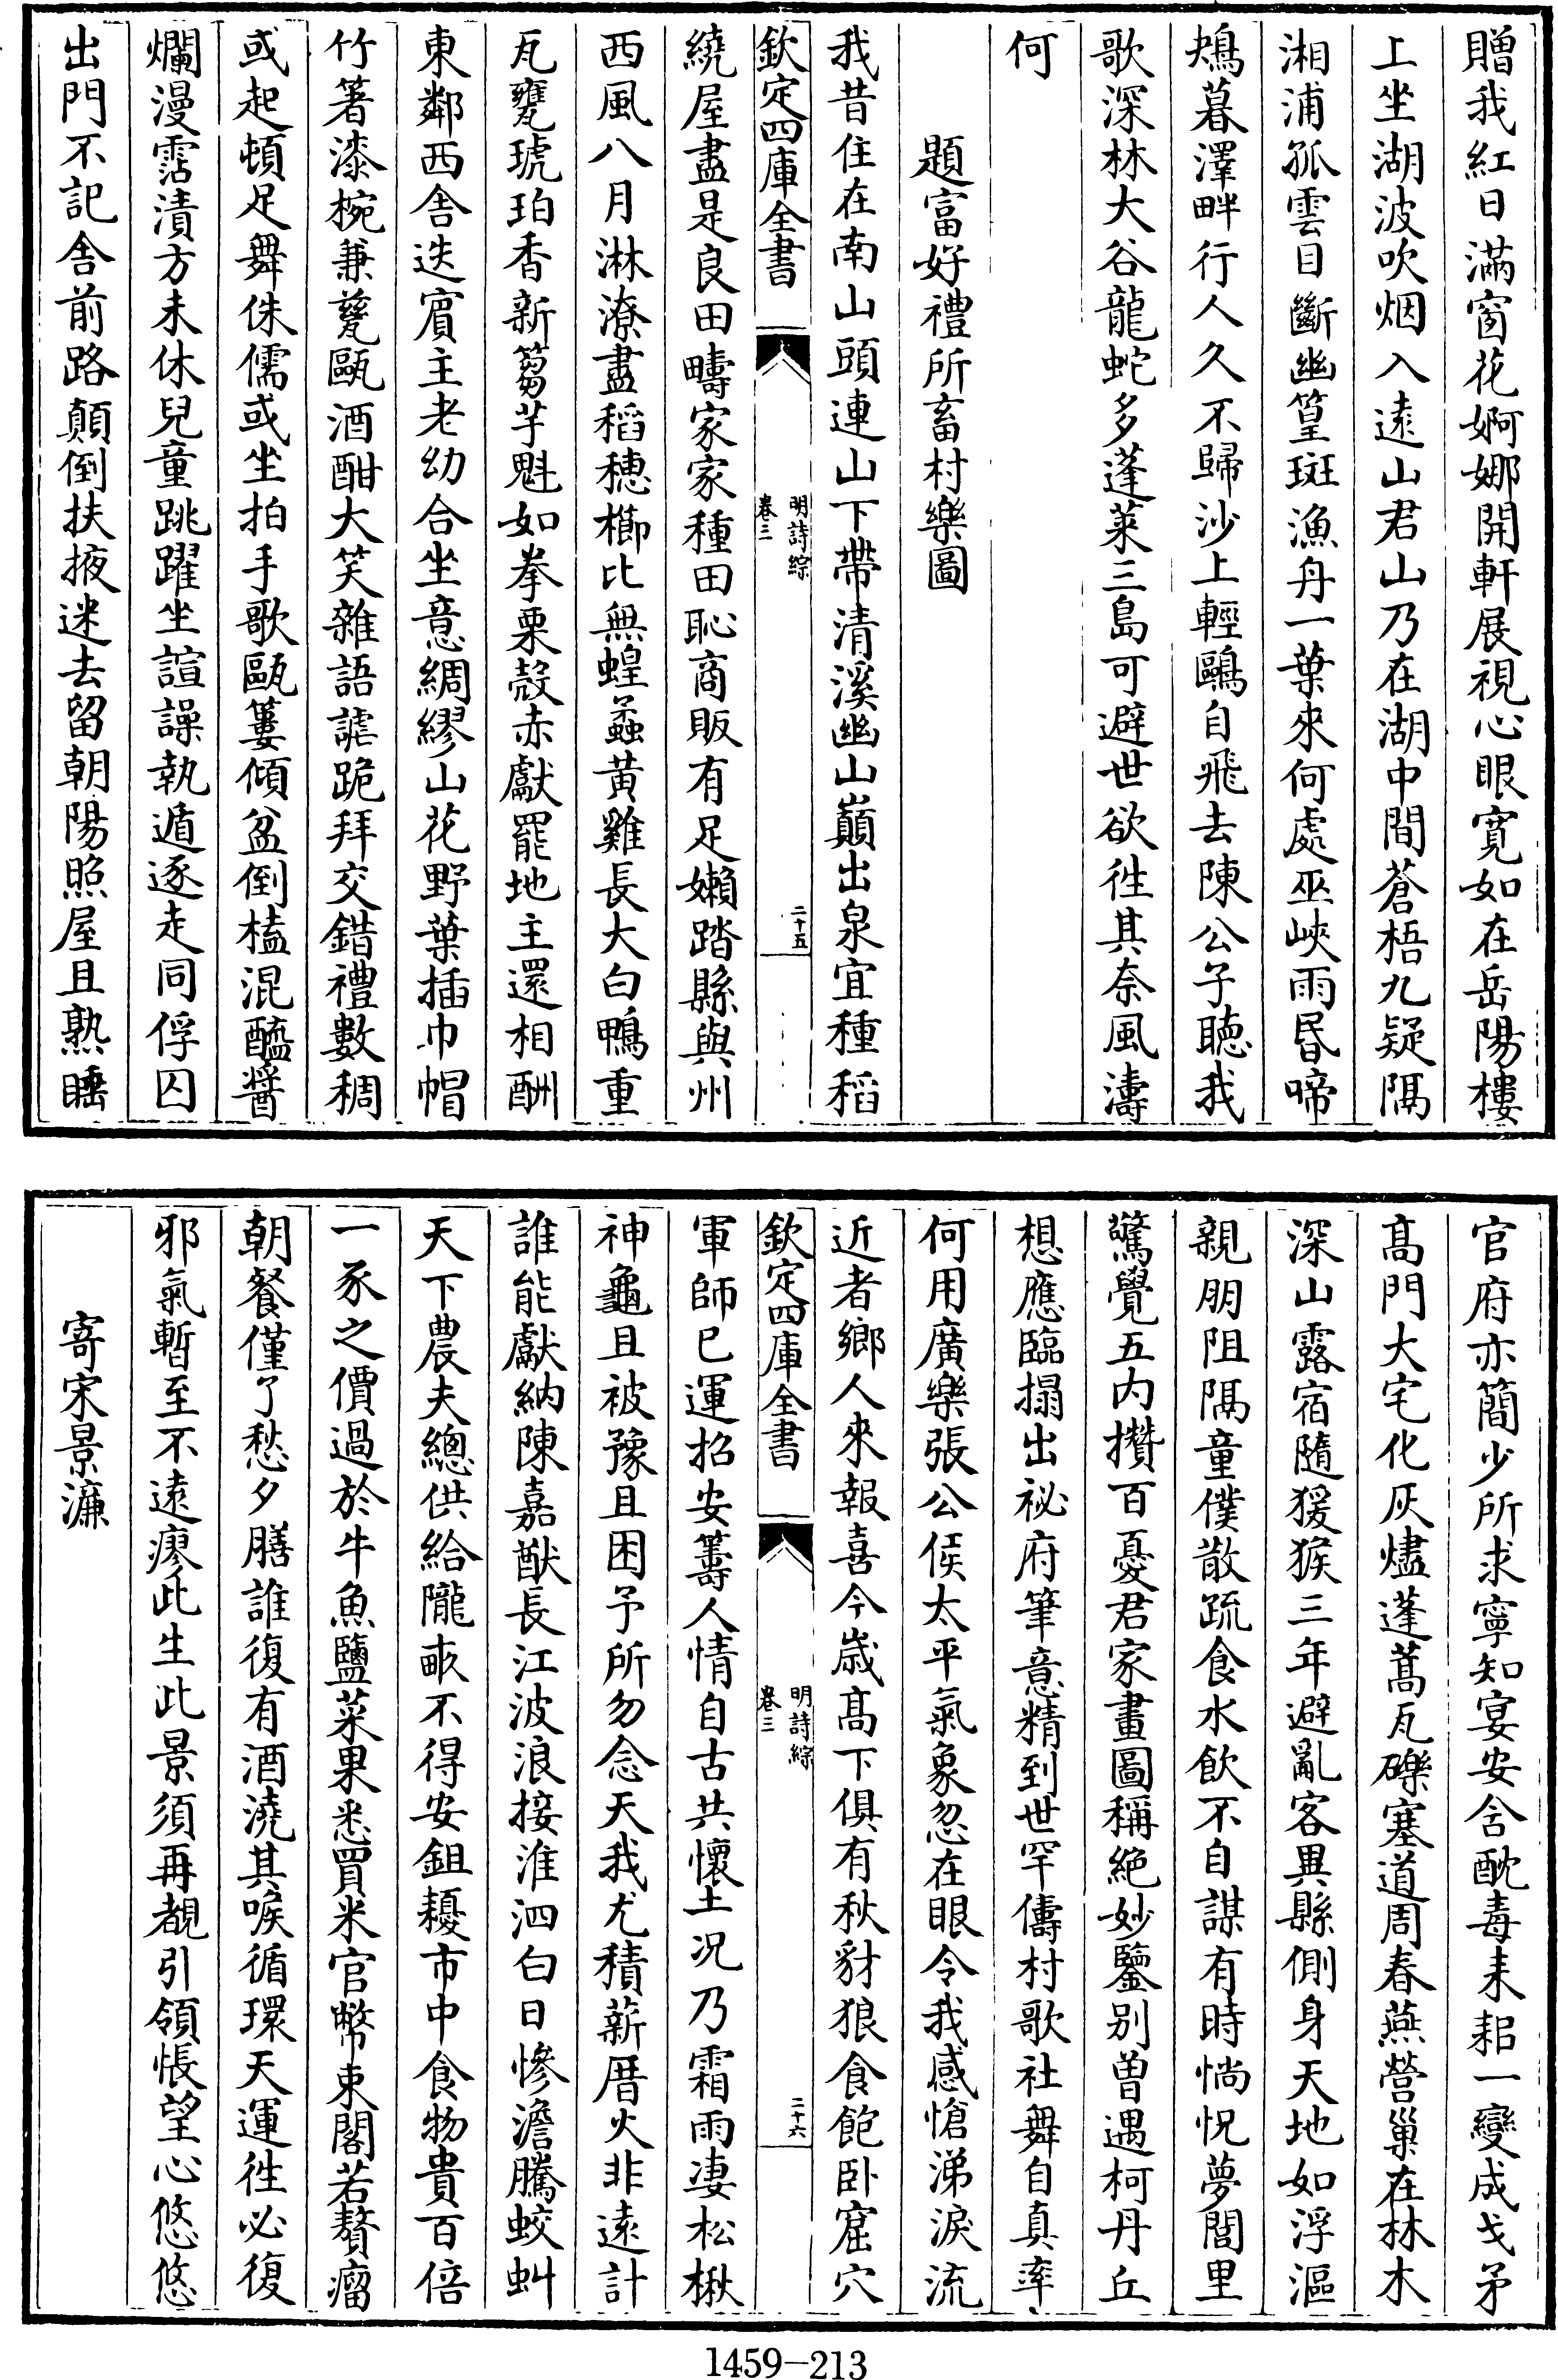 贈我紅日滿窗花婀娜開軒展視心眼寛如在岳陽樓
上坐湖波吹烟入遠山君山乃在湖中間蒼梧九疑隔
湘浦孤雲目斷幽篁斑漁舟一葉來何處巫峽雨昏啼
鴂暮澤畔行人久不歸沙上輕鷗自飛去陳公子聽我
歌深林大谷龍蛇多蓬萊三島可避世欲徃其奈風濤
何
題富好禮所畜村樂圖
我昔住在南山頭連山下帶清溪幽山巔出泉宜種稻
欽定四庫全書
明詩綜
卷三
二十五
繞屋盡是良田疇家家種田恥商販有足嬾踏縣與州
西風八月淋潦盡稻穗櫛比無蝗蟊黄雞長大白鴨重
瓦甕琥珀香新篘芋魁如拳栗殻赤獻罷地主還相酬
東鄰西舎迭賓主老幼合坐意綢繆山花野葉插巾帽
竹箸漆椀兼甆甌酒酣大笑雜語謔跪拜交錯禮數稠
或起頓足舞侏儒或坐拍手歌甌簍傾盆倒榼混醯醬
爛漫霑漬方未休兒童跳躍坐諠譟執遁逐走同俘囚
出門不記舎前路顛倒扶掖迷去留朝陽照屋且熟睡
官府亦簡少所求寧知宴安含酖毒耒耜一變成戈矛
髙門大宅化灰燼蓬蒿瓦礫塞道周春燕營巢在林木
深山露宿隨猨猴三年避亂客異縣側身天地如浮漚
親朋阻隔童僕散疏食水飲不自謀有時惝怳夢閭里
驚覺五内攢百憂君家畫圖稱絶妙鑒别曽遇柯丹丘
想應臨搨出祕府筆意精到世罕儔村歌社舞自真率
何用廣樂張公侯太平氣象忽在眼令我感愴涕淚流
近者鄉人來報喜今歳髙下俱有秋豺狼食飽卧窟穴
欽定四庫全書
明詩綜
卷三
二十六
軍師已運招安籌人情自古共懷土况乃霜雨凄松楸
神龜且被豫且困予所勿念天我尤積薪厝火非遠計
誰能獻納陳嘉猷長江波浪接淮泗白日慘澹騰蛟虯
天下農夫總供給隴畞不得安鉏耰市中食物貴百倍
一豕之價過於牛魚鹽菜果悉買米官幣束閣若贅瘤
朝餐僅了愁夕膳誰復有酒澆其喉循環天運徃必復
邪氣暫至不遠瘳此生此景須再覩引領悵望心悠悠
寄宋景濂
1459—213